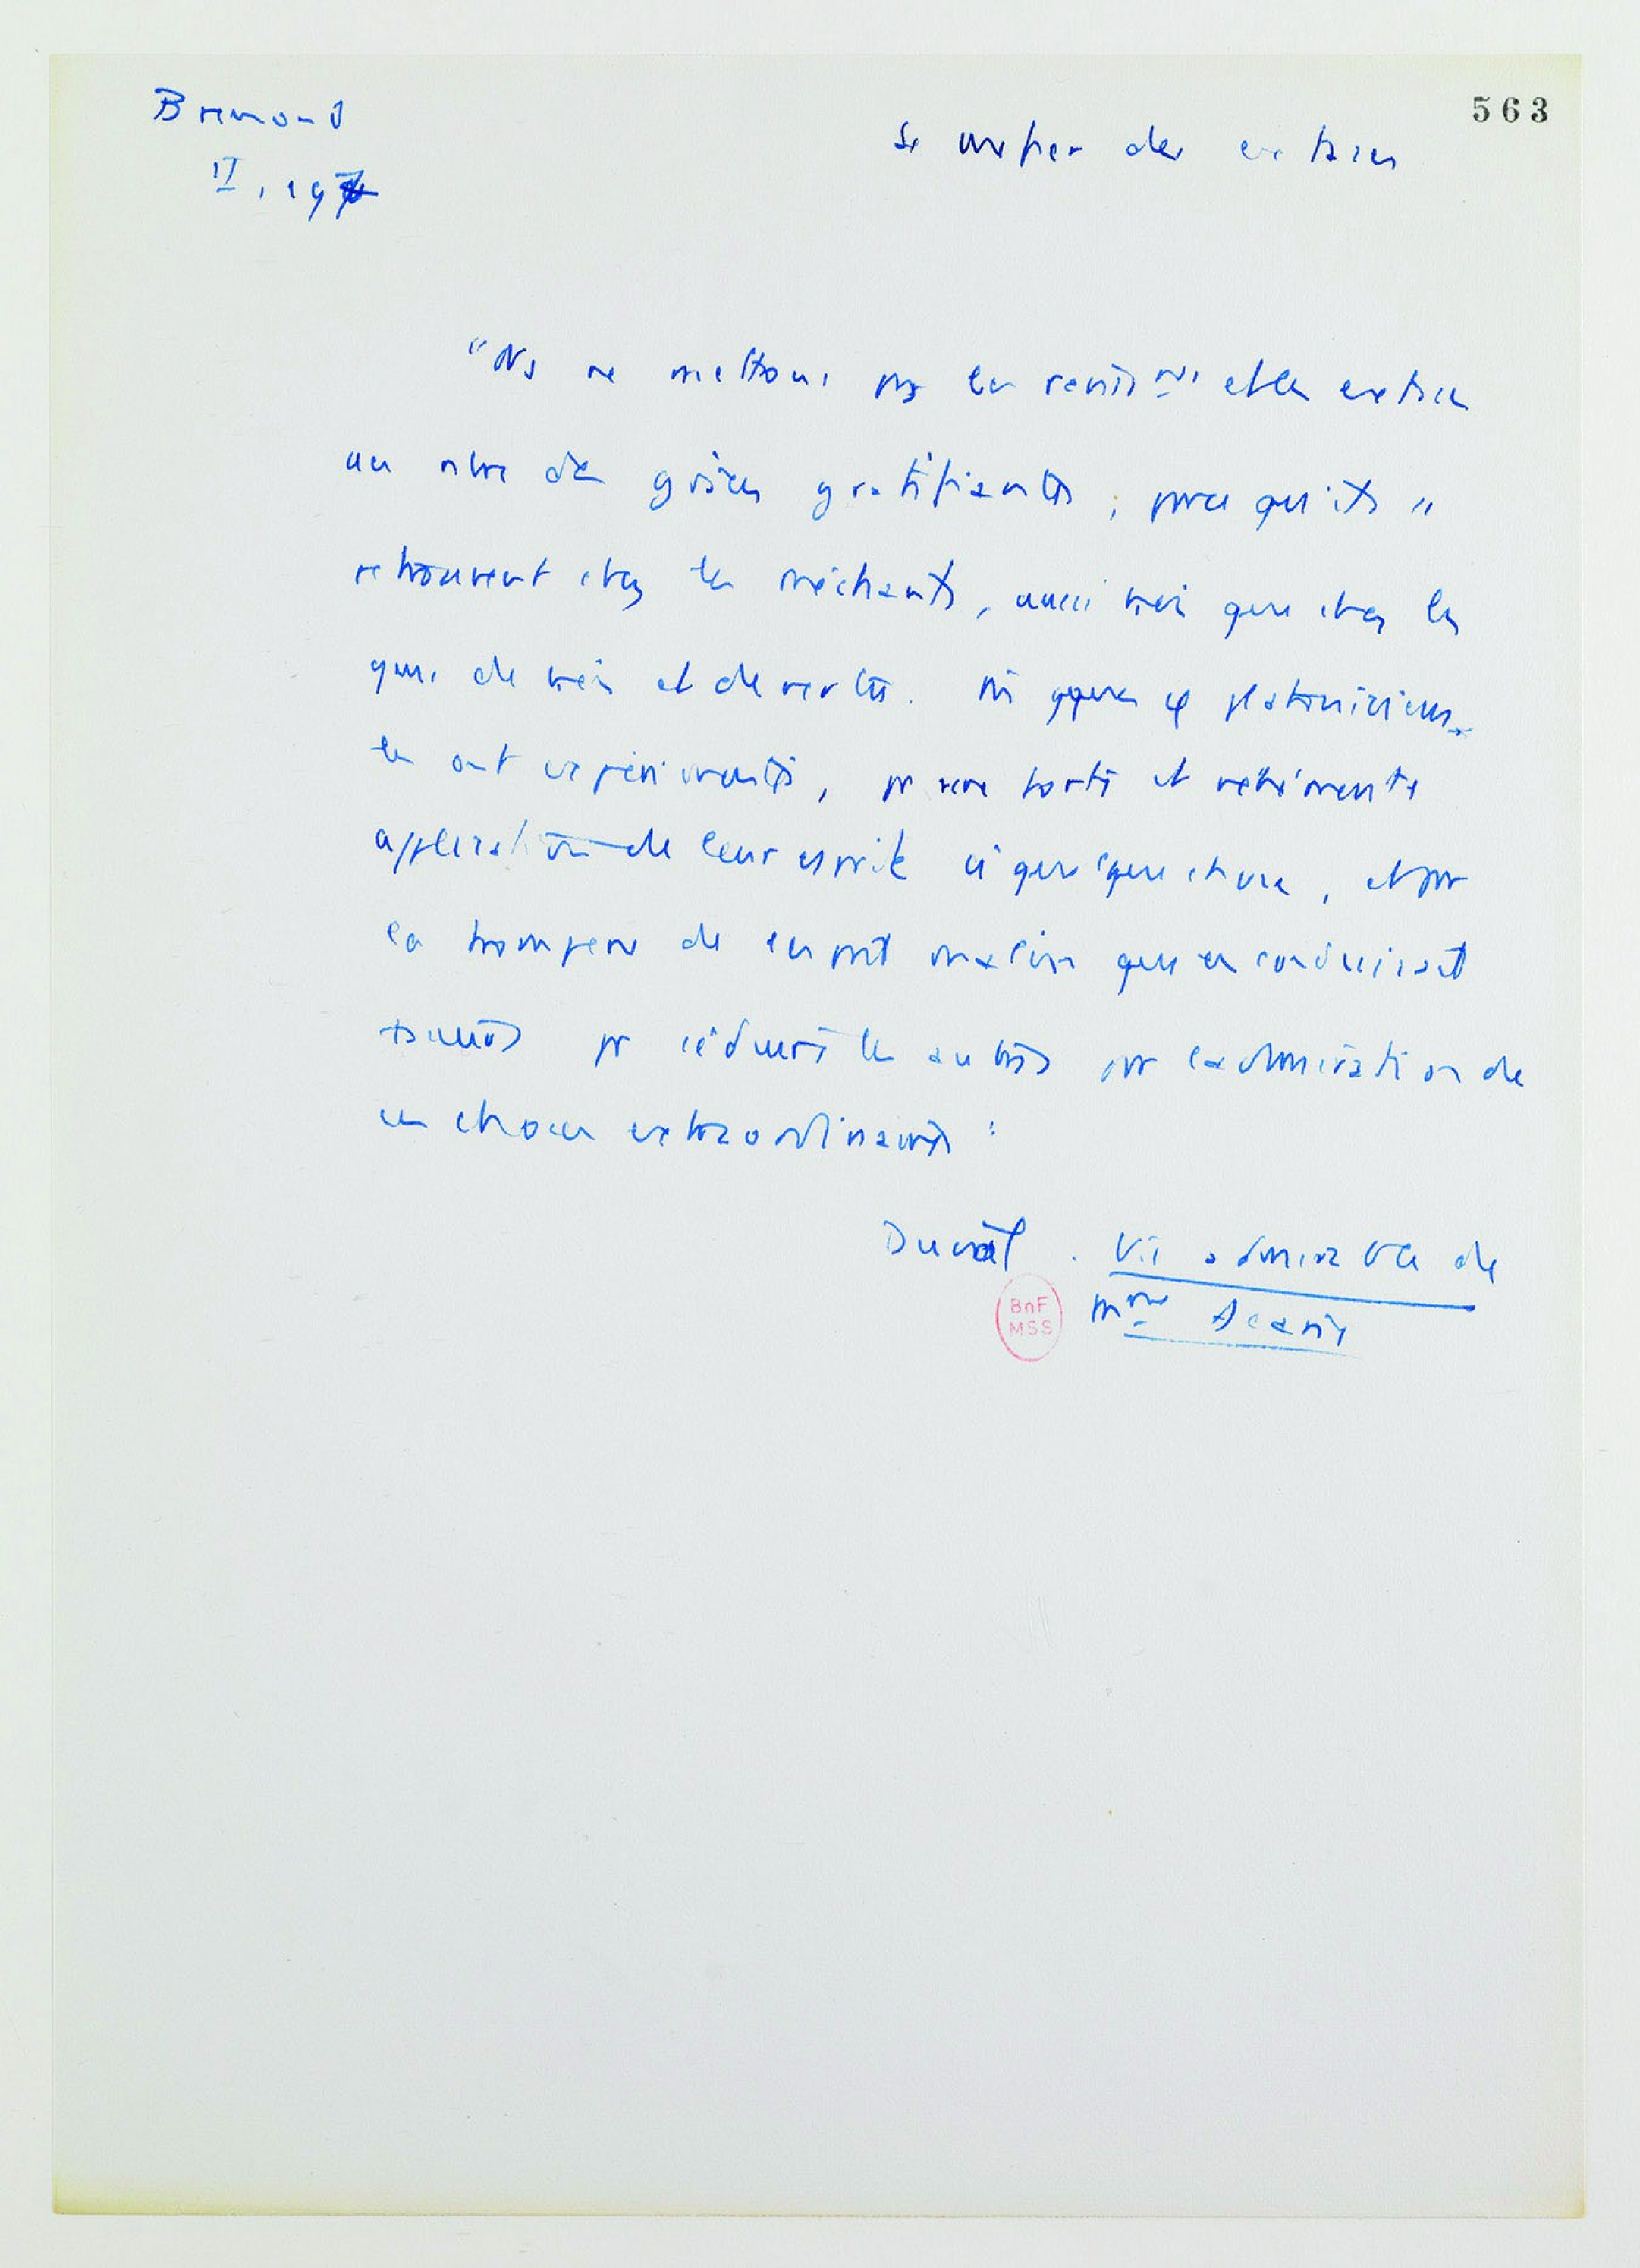 Bremond
II, 197
563
Se méfier des extases
"Ns ne mettons pas les raviss nts et les extases
au nbre des grâces gratifiantes ; parce qu'ils se
retrouvent chez les méchants, aussi bien que chez les
gens de bien et de vertu. qques φ platoniciens
les ont expérimentés, par une forte et véhémente
application de leur esprit à quelque chose, et par
la tromperie de l'esprit malin qui en conduisait
pr séduire les autres par l'admiration de
ces choses extraordinaires"
Duval . Vie admirable de
Mme Acarie
BnF
MSS